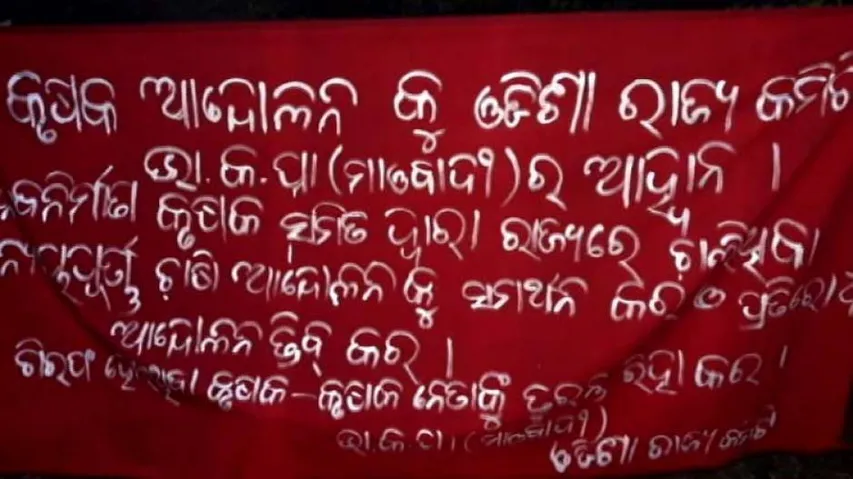 କୃଷକ ଆନ୍ଦୋଳନ କୁ ଓଡିଶା ରାଜ୍ୟ କମିଟି
ଭା.କ.ପା (ମାଓବାଦୀ) ର ଆହ୍ୱାନ ।
ନବନିର୍ମାଣ କୃଷକ ସମିତି ଦ୍ୱାରା ରାଜ୍ୟରେ ଚାଲିଥିବା
ନ୍ୟାୟପୂର୍ଣ୍ଣ ଚାଷୀ ଆନ୍ଦୋଳନ କୁ ସମର୍ଥନ କର ଓ ପ୍ରତିରୋଧ
ଆନ୍ଦୋଳନ ତିବ୍ର କର ।
ଗିରଫ ହୋଇଥିବା କୃଷକ - କୃଷକ ନେତାଙ୍କୁ ତୁରନ୍ତ ରିହା କର ।
ଭା.କ.ପା. (ମାଓବାଦୀ)
ଓଡିଶା ରାଜ୍ୟ କମିଟି